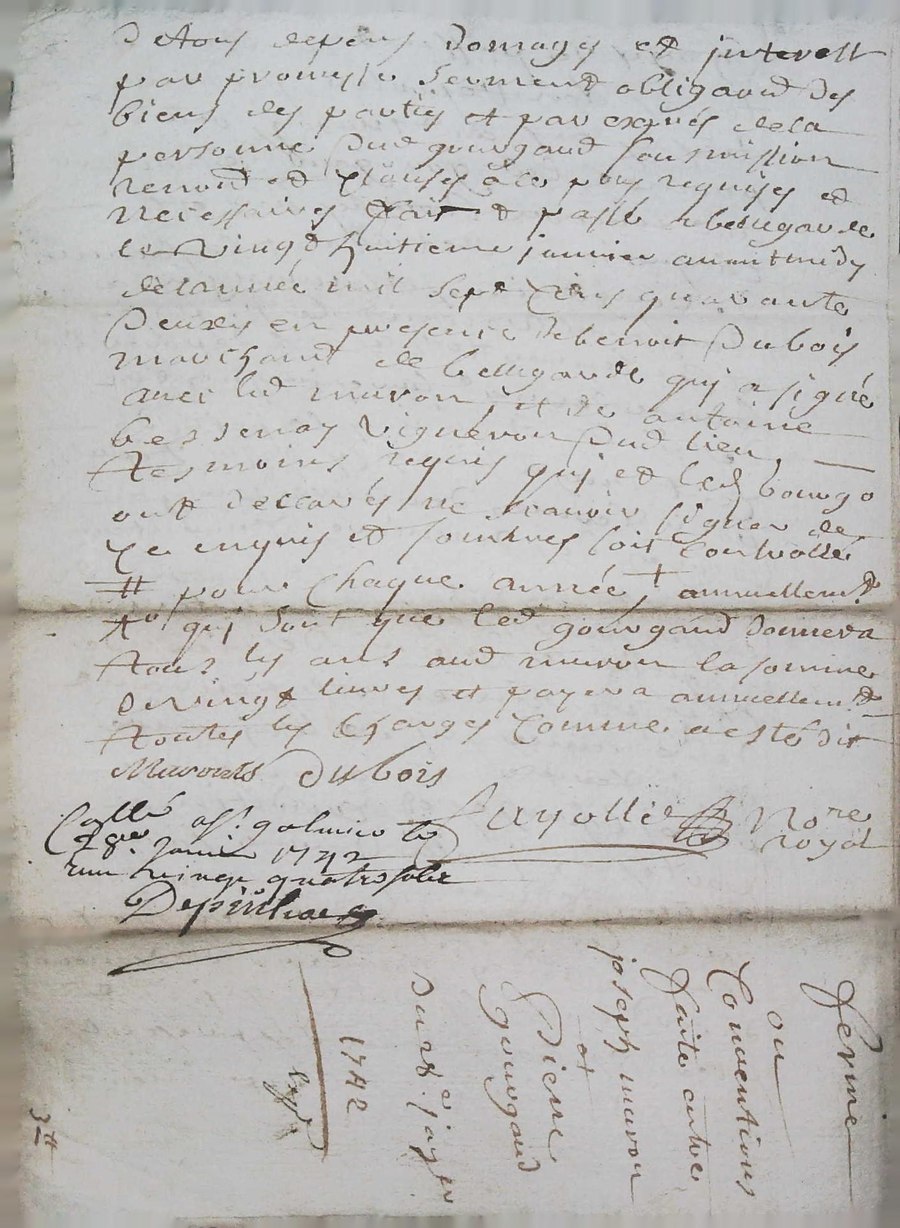 De tous depens Domages et jnterest
par promesse serment obligaõn des
biens des parties et par exprés de la
personne Dud gourgaud soumission
renonõn et Clauses a ce plus requises et
necessaires fait & passé a bellegarde
le vingt huitieme janvier avant midy
de l'année mil sept Cens quarante
Deux en presence de benoit Dubois
marchand de bellegarde qui a signé
avec led muron, et de antoine
bessenay vigneron Dud lieu
tesmoins requis qui et led gourgo
ont declarés ne scavoir signer de
Ce enquis et sommés soit Controllé
# pour Chaque année + annuellemt
qui sont que led gourgaud donnera
tous les ans aud muron la somme
De vingt livres et payera annuellemt
toutes les charges Comme a esté dit
Murons Dubois
Fayolle Nore
royal
Collé a St galmier le
28e janvier 1742
vingt quatre sols
ferme
ou
Conventions
faite entre
joseph muron
et
Pierre
gourgaud
Du 28e janvr
1742
3#